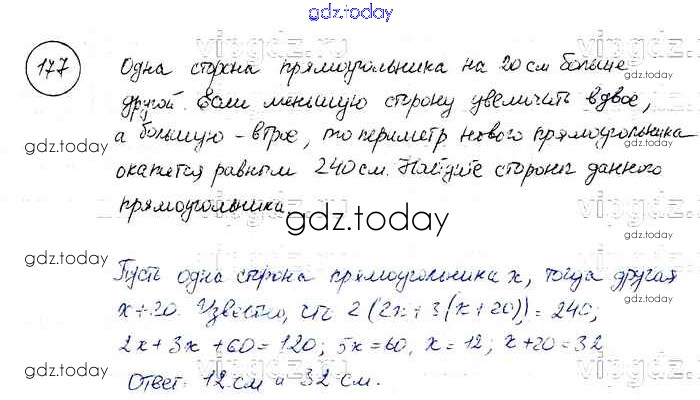 gdz.today
177
Одна сторона прямоугольника на 20 см больше
другой. Если меньшую сторону увеличить вдвое,
а большую - втрое, то периметр нового прямоугольника
окажется равным 240 см. Найдите стороны данного
прямоугольника.
Пусть одна сторона прямоугольника x, тогда другая
x+20. Известно, что 2(2x+3(x+20))=240;
2x+3x+60=120; 5x=60, x=12; x+20=32
Ответ: 12 см и 32 см.
vipgdz.ru
gdz.today
gdz.today
gdz.today
gdz.today
gdz.today
gdz.today
gdz.today
gdz.today
gdz.today